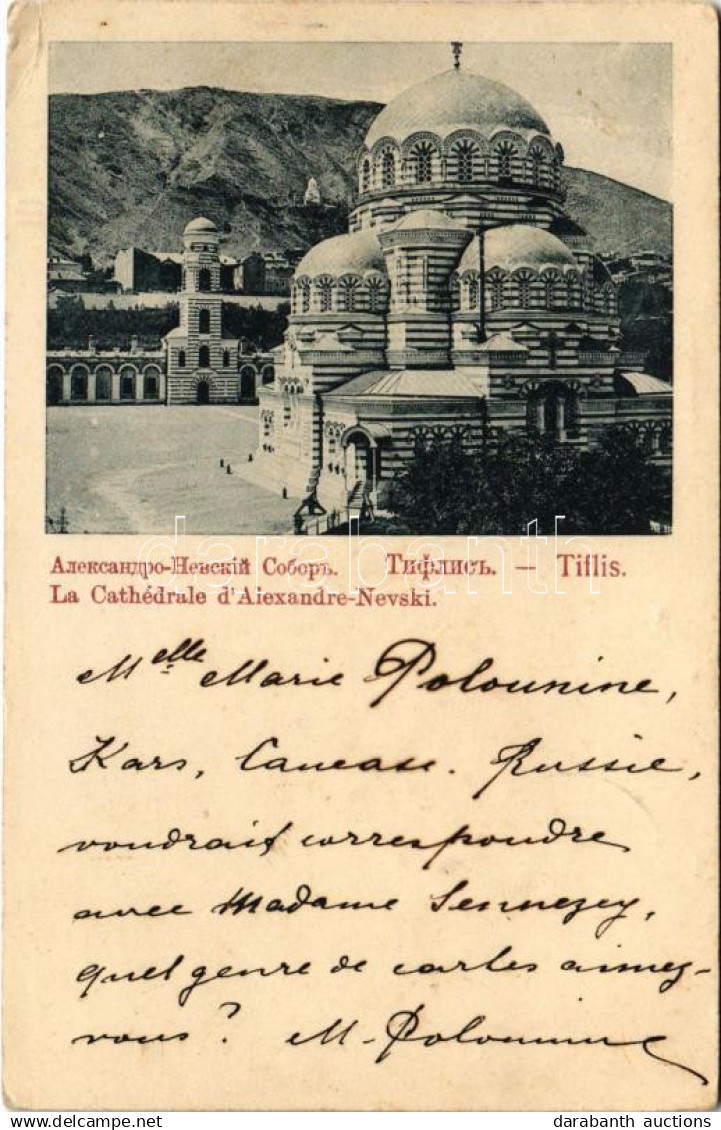 Александро-Невскій Соборъ. Тифлисъ. — Tiflis.
La Cathédrale d'Alexandre-Nevski.
darabanth
Melle Marie Polounine,
Kars, Caucase. Russie,
voudrait correspondre
avec Madame Sennezey,
quel genre de cartes aimez-
vous? M. Polounine
delcampe.net
darabanth auctions